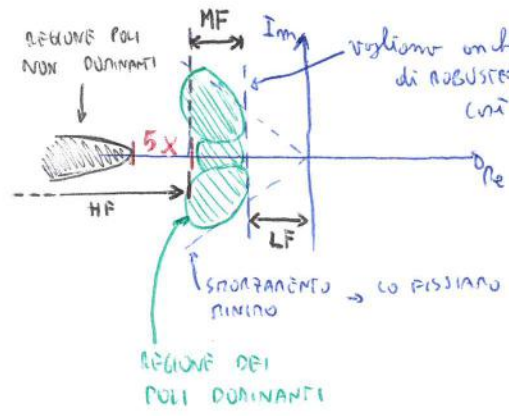 MF
Im
REGIONE POLI
NON DOMINANTI
vogliamo anch
di ROBUSTE
così
5x
Re
HF
LF
SMORZAMENTO → LO FISSIAMO
MINIMO
REGIONE DEI
POLI DOMINANTI